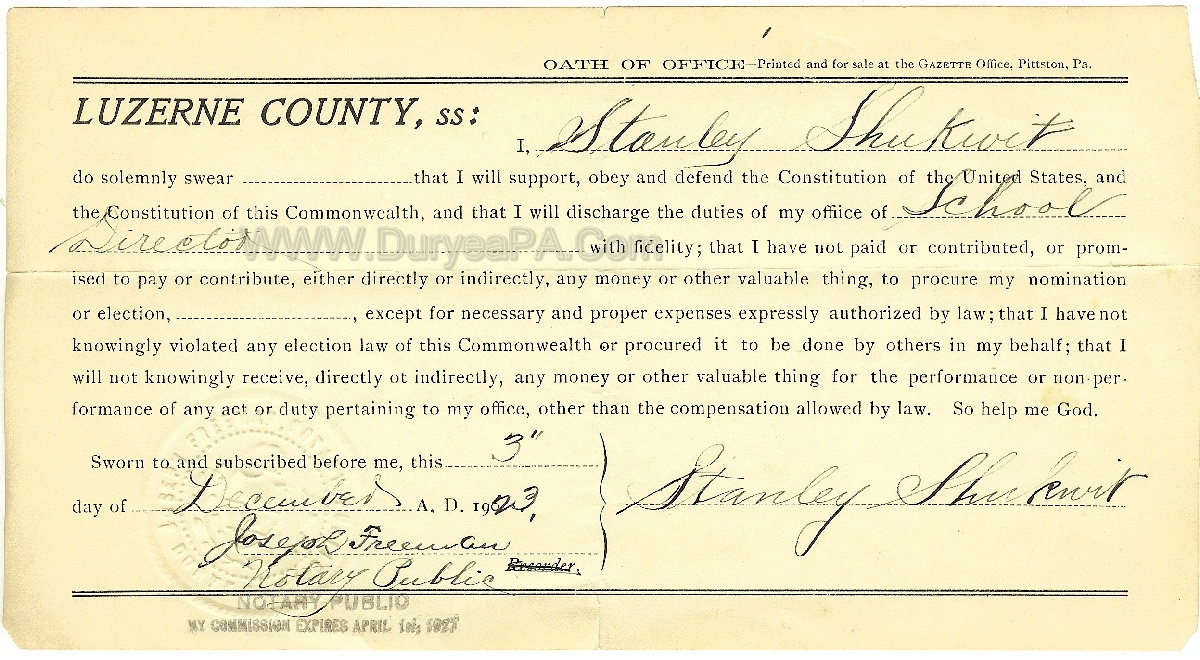 OATH OF OFFICE—Printed and for sale at the GAZETTE Office, Pittston, Pa.
LUZERNE COUNTY, ss:
I, Stanley Shukwit
do solemnly swear that I will support, obey and defend the Constitution of the United States, and
the Constitution of this Commonwealth, and that I will discharge the duties of my office of School
Director with fidelity; that I have not paid or contributed, or prom-
WWW.DuryeaPA.Com
ised to pay or contribute, either directly or indirectly, any money or other valuable thing, to procure my nomination
or election, , except for necessary and proper expenses expressly authorized by law; that I have not
knowingly violated any election law of this Commonwealth or procured it to be done by others in my behalf; that I
will not knowingly receive, directly ot indirectly, any money or other valuable thing for the performance or non-per-
formance of any act or duty pertaining to my office, other than the compensation allowed by law. So help me God.
Sworn to and subscribed before me, this 3"
day of December A. D. 1923,
Stanley Shukwit
Joseph Freeman
Notary Public Recorder.
NOTARY PUBLIC
MY COMMISSION EXPIRES APRIL 1st, 1927